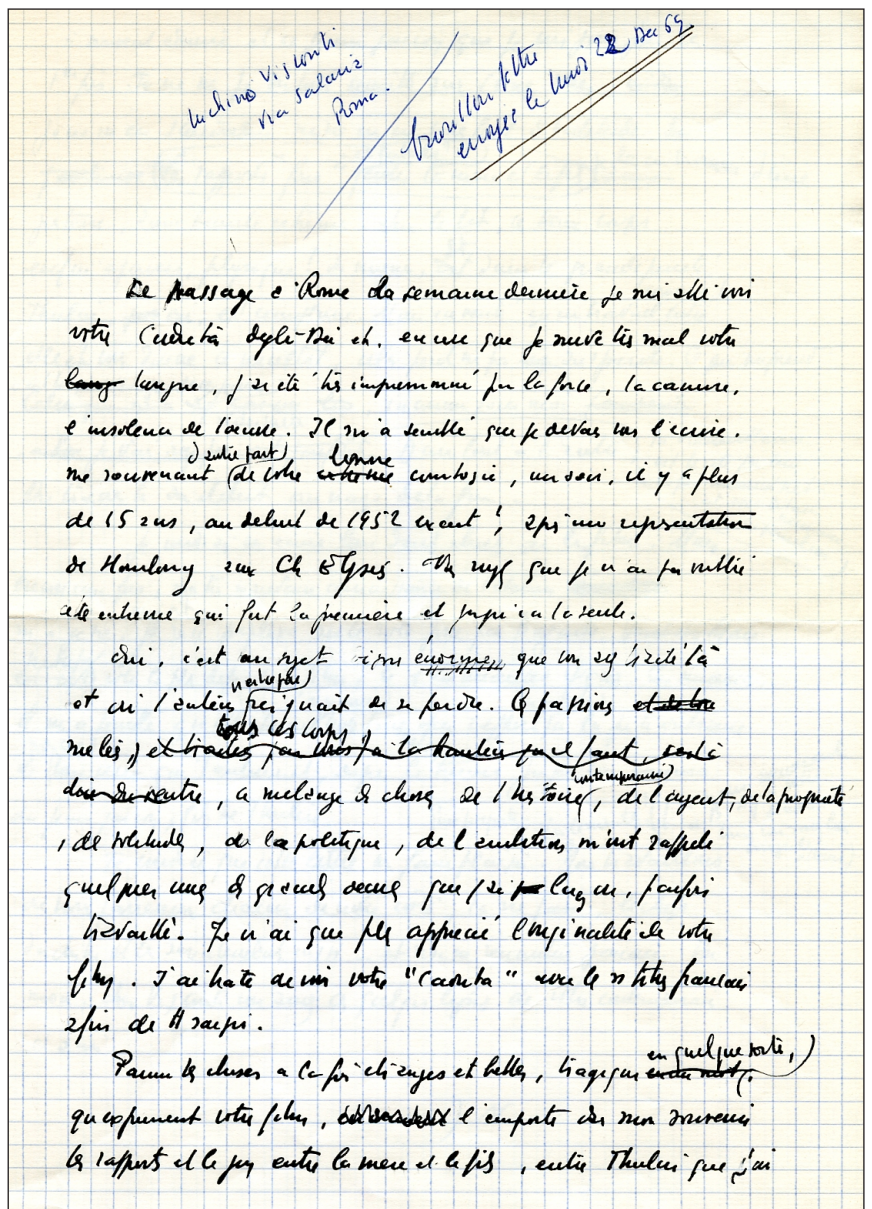 Luchino Visconti
via Salaria
Roma.
brouillon lettre
envoyée le lundi 22 Dec 69
De passage à Rome la semaine dernière je suis allé voir
votre Caduta degli Dei et, encore que je suive très mal votre
langue, j'ai été très impressionné par la force, la carrure,
l'insolence de l'oeuvre. Il m'a semblé que je devais vous l'ecrire.
me souvenant (d'autre part) de votre bonne courtoisie, un soir, il y a plus
de 15 ans, au debut de 1952 exact!, après une representation
de Hambourg aux Ch Elysées. Un que je n'ai pas oublié
cette entrevue qui fut la première et jusqu'ici la seule.
Oui, c'est un sujet énorme, que vous avez traité là
et où l'auteur risquait de se perdre. Ces passions
melées, tous ces corps
ce melange de choses de l'histoire (contemporaine), de l'argent, de la propriété
, de solitudes, de la politique, de l'ambition m'ont rappelé
quelques unes des grandes oeuvres que j'ai lues ou, parfois
travaillé. Je n'ai que plus apprecié l'originalité de votre
film. J'ai hate de voir votre "Caduta" avec les s/titres francais
afin de
Parmi les choses à la fois etranges et belles, tragiques en quelque sorte,
qu'expriment votre film, l'emporte dans mon souvenir
les rapports et le jeu entre la mere et le fils, entre Thulin que j'ai